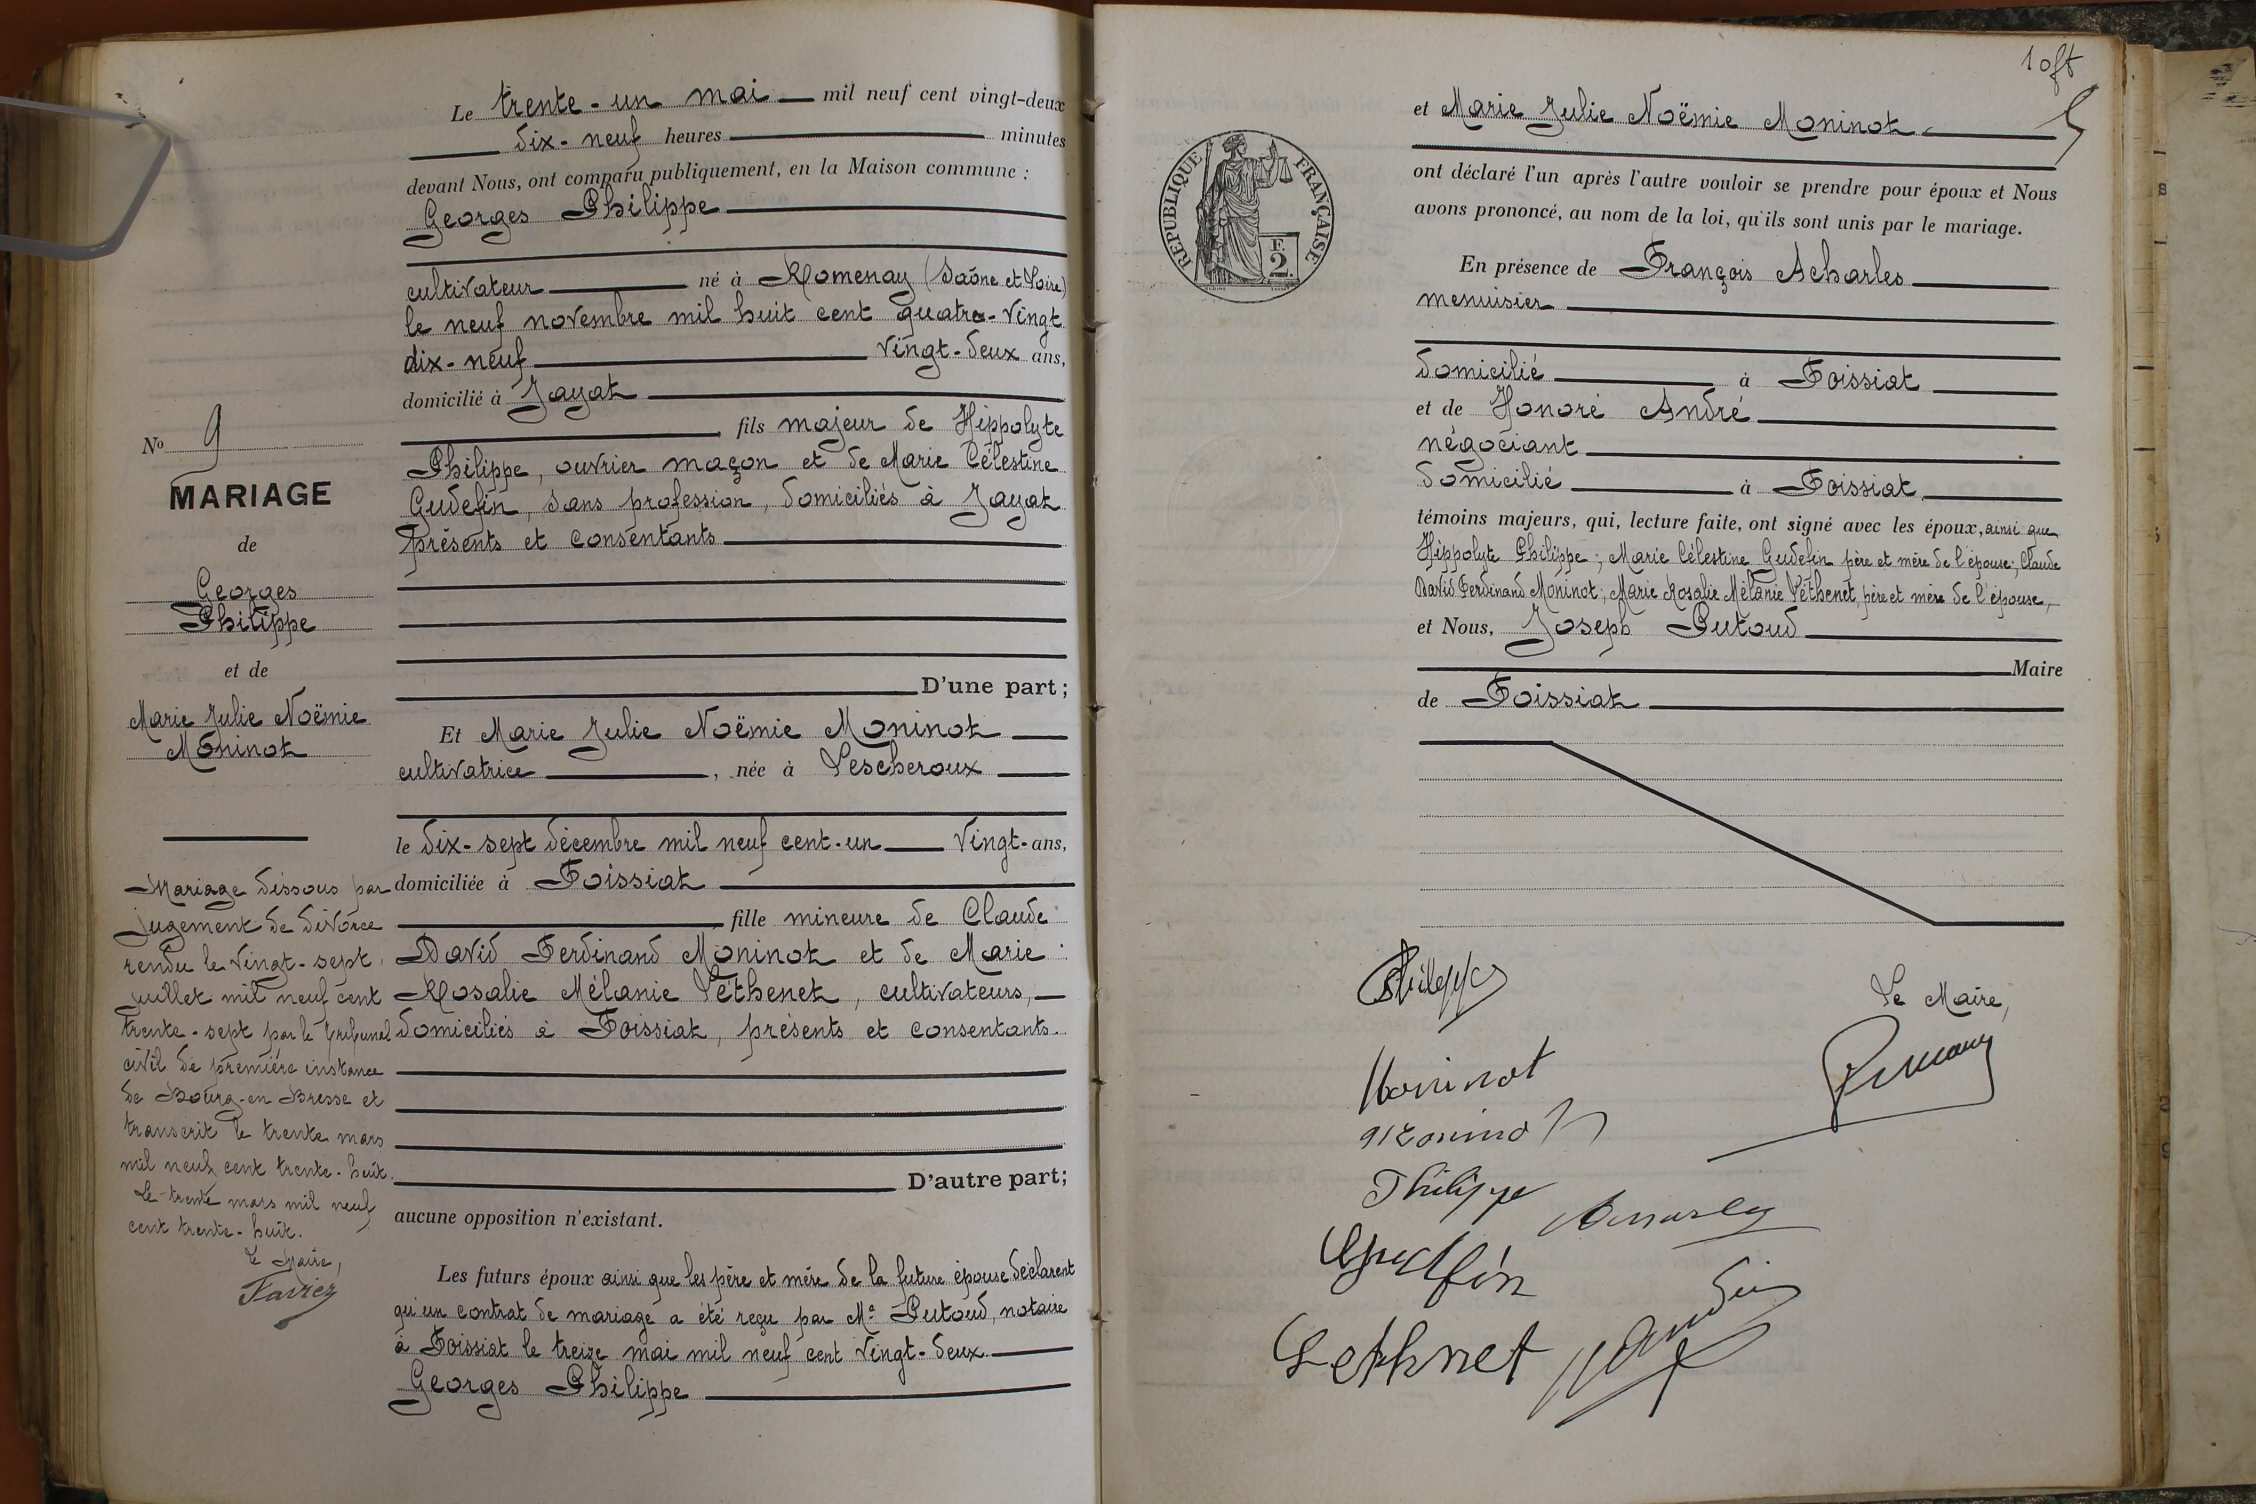 Le trente-un mai mil neuf cent vingt-deux
dix-neuf heures minutes
devant Nous, ont comparu publiquement, en la Maison commune :
Georges Philippe
cultivateur né à Romenay (Saône et Loire)
le neuf novembre mil huit cent quatre-vingt
dix-neuf vingt-deux ans,
domicilié à Jayat
fils majeur de Hippolyte
Philippe, ouvrier maçon et de Marie Célestine
Gudefin, sans profession, domiciliés à Jayat
présents et consentants
D'une part ;
Et Marie Julie Noëmie Moninot
cultivatrice, née à Lescheroux
le dix-sept décembre mil neuf cent-un vingt-ans,
domiciliée à Foissiat
fille mineure de Claude
David Ferdinand Moninot et de Marie
Rosalie Mélanie Léthenet, cultivateurs,
domiciliés à Foissiat, présents et consentants.
D'autre part ;
aucune opposition n'existant.
Les futurs époux ainsi que les père et mère de la future épouse déclarent
qu'un contrat de mariage a été reçu par Me Putoud, notaire
à Foissiat le treize mai mil neuf cent vingt-deux
Georges Philippe
No 9
MARIAGE
de
Georges
Philippe
et de
Marie Julie Noëmie
Moninot
Mariage dissous par
jugement de divorce
rendu le vingt-sept
juillet mil neuf cent
trente-sept par le tribunal
civil de première instance
de Bourg-en-Bresse et
transcrit le trente mars
mil neuf cent trente-huit.
Le trente mars mil neuf
cent trente-huit.
Le Maire,
RÉPUBLIQUE FRANÇAISE
F.
2.
et Marie Julie Noëmie Moninot
ont déclaré l'un après l'autre vouloir se prendre pour époux et Nous
avons prononcé, au nom de la loi, qu'ils sont unis par le mariage.
En présence de François Acharles
menuisier
domicilié à Foissiat
et de Honoré André
négociant
domicilié à Foissiat
témoins majeurs, qui, lecture faite, ont signé avec les époux, ainsi que
Hippolyte Philippe ; Marie Célestine Gudefin père et mère de l'épouse ; Claude
David Ferdinand Moninot ; Marie Rosalie Mélanie Léthenet, père et mère de l'épouse,
et Nous, Joseph Putoud
Maire
de Foissiat
Philippe
Le Maire,
Moninot
Moninot
Philippe
Gudefin
Lethnet